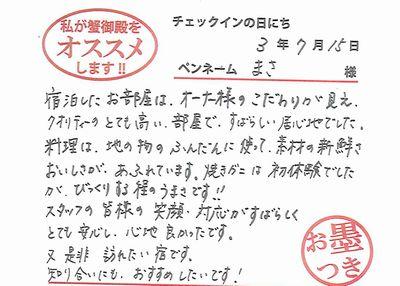 私が蟹御殿を
オススメ
します!!
チェックインの日にち
3年7月15日
ペンネーム まさ 様
宿泊したお部屋は、オーナー様のこだわりが見え、
クオリティーのとても高い、部屋で、すばらしい居心地でした。
料理は、地の物のふんだんに使って、素材の新鮮さ
おいしさが、あふれています。焼きがには初体験でした
が、びっくりする程のうまさです!!
スタッフの皆様の笑顔・対応がすばらしく
とても安心し、心地良かったです。
又是非訪れたい宿です。
知り合いにも、おすすめしたいです!
お墨
つき